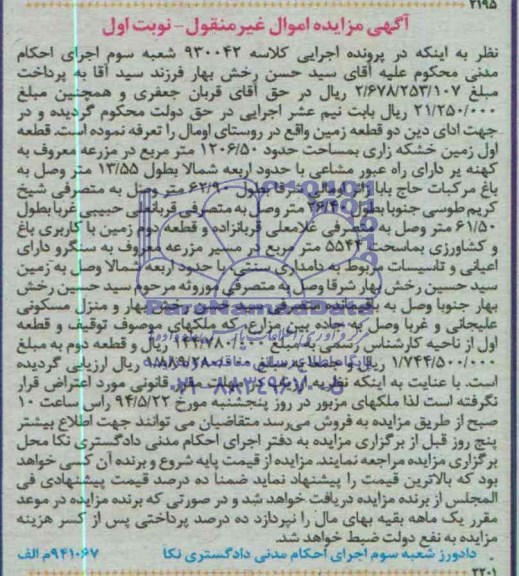 ۲۱۹۵
آگهی مزایده اموال غیرمنقول - نوبت اول
نظر به اینکه در پرونده اجرایی کلاسه ۹۳۰۰۴۲ شعبه سوم اجرای احکام
مدنی محکوم علیه آقای سید حسن رخش بهار فرزند سید آقا به پرداخت
مبلغ ۲/۶۷۸/۲۵۳/۱۰۷ ریال در حق آقای قربان جعفری و همچنین مبلغ
۲۱/۲۵۰/۰۰۰ ریال بابت نیم عشر اجرایی در حق دولت محکوم گردیده و در
جهت ادای دین دو قطعه زمین واقع در روستای اومال را تعرفه نموده است. قطعه
اول زمین خشکه زاری بمساحت حدود ۱۲۰۶/۵۰ متر مربع در مزرعه معروف به
کهنه پر دارای راه عبور مشاعی با حدود اربعه شمالا بطول ۱۳/۵۵ متر وصل به
باغ مرکبات حاج بابا شرقا بطول ۶۲/۹۰ متر وصل به متصرفی شیخ
کریم طوسی جنوبا بطول ۲۶/۴۰ متر وصل به متصرفی قربانعلی حبیبی غربا بطول
۶۱/۵۰ متر وصل به متصرفی غلامعلی قربانزاده و قطعه دوم زمین با کاربری باغ
و کشاورزی بمساحت ۵۵۴۴ متر مربع در مسیر مزرعه معروف به سنگرو دارای
اعیانی و تاسیسات مربوط به دامداری سنتی با حدود اربعه شمالا وصل به زمین
سید حسین رخش بهار شرقا وصل به متصرفی موروثه مرحوم سید حسین رخش
بهار جنوبا وصل به باقیمانده متصرفی سید حسن رخش بهار و منزل مسکونی
علیجانی و غربا وصل به جاده بین مزارع، که ملکهای موصوف توقیف و قطعه
اول از ناحیه کارشناس رسمی به مبلغ ۱۴۴/۷۸۰/۰۰۰ ریال و قطعه دوم به مبلغ
۱/۷۴۴/۵۰۰/۰۰۰ ریال و جمعا به مبلغ ۱/۸۸۹/۲۸۰/۰۰۰ ریال ارزیابی گردیده
است. با عنایت به اینکه نظریه ارزیابی در مهلت مقرر قانونی مورد اعتراض قرار
نگرفته است لذا ملکهای مزبور در روز پنجشنبه مورخ ۹۴/۵/۲۲ راس ساعت ۱۰
صبح از طریق مزایده به فروش می‌رسد متقاضیان می توانند جهت اطلاع بیشتر
پنج روز قبل از برگزاری مزایده به دفتر اجرای احکام مدنی دادگستری نکا محل
برگزاری مزایده مراجعه نمایند. مزایده از قیمت پایه شروع و برنده آن کسی خواهد
بود که بالاترین قیمت را پیشنهاد نماید ضمنا ده درصد قیمت پیشنهادی فی
المجلس از برنده مزایده دریافت خواهد شد و در صورتی که برنده مزایده در موعد
مقرر یک ماهه بقیه بهای مال را نپردازد ده درصد پرداختی پس از کسر هزینه
مزایده به نفع دولت ضبط خواهد شد.
دادورز شعبه سوم اجرای احکام مدنی دادگستری نکا ۹۴۱۰۶۷م الف
۲۲۰۱
ParsNamadData
۰۲۱-۸۸۳۴۹۶۷۰